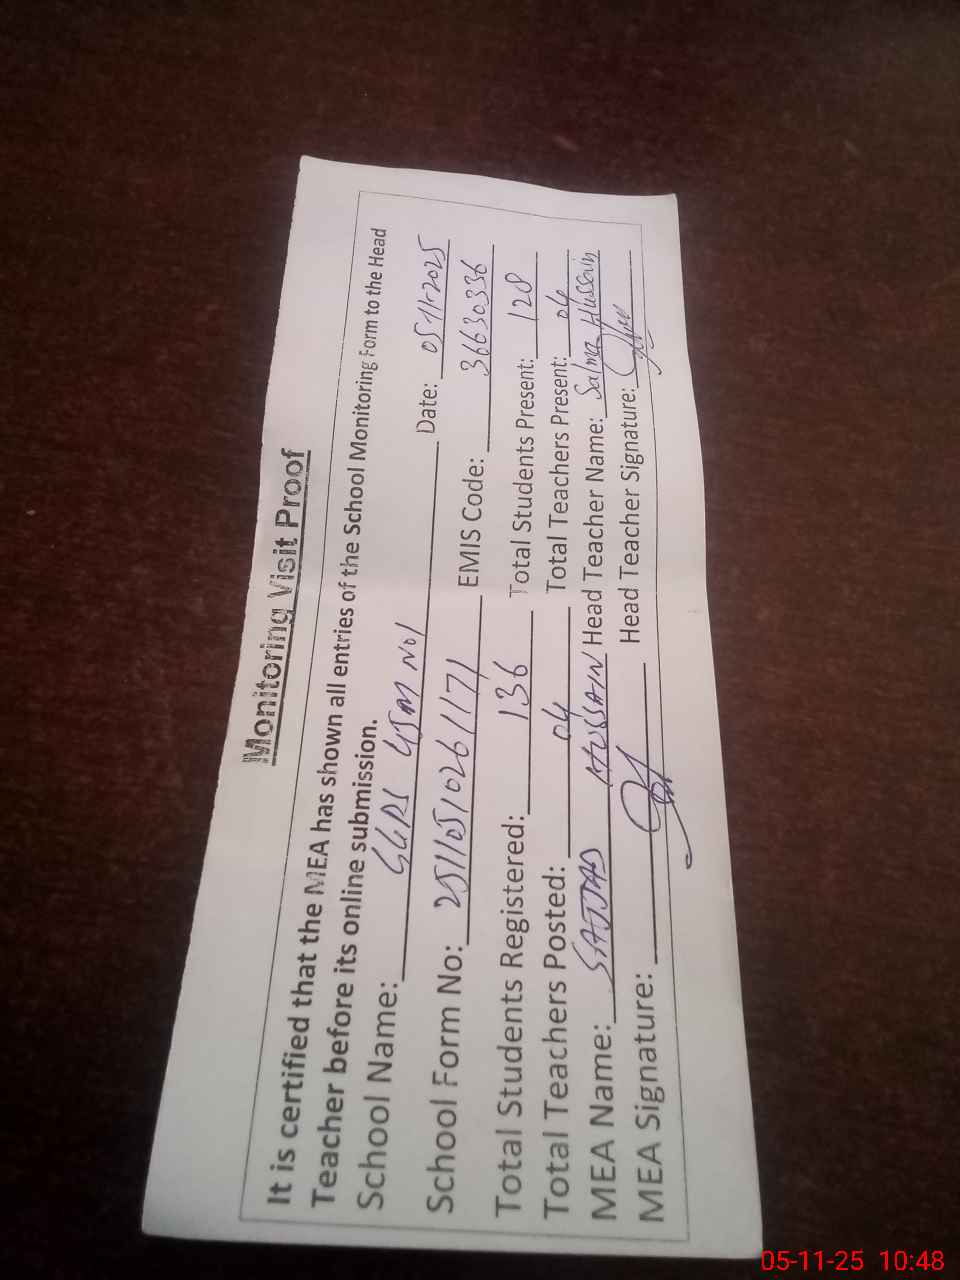 Monitoring Visit Proof
It is certified that the MEA has shown all entries of the School Monitoring Form to the Head
Teacher before its online submission.
School Name: GGPS 45M No1 Date: 05/11/2025
School Form No: 25110510261171 EMIS Code: 36630336
Total Students Registered: 136 Total Students Present: 128
Total Teachers Posted: 04 Total Teachers Present: 04
MEA Name: SAJJAD HUSSAIN Head Teacher Name: Salma Hussain
MEA Signature: Head Teacher Signature:
05-11-25 10:48